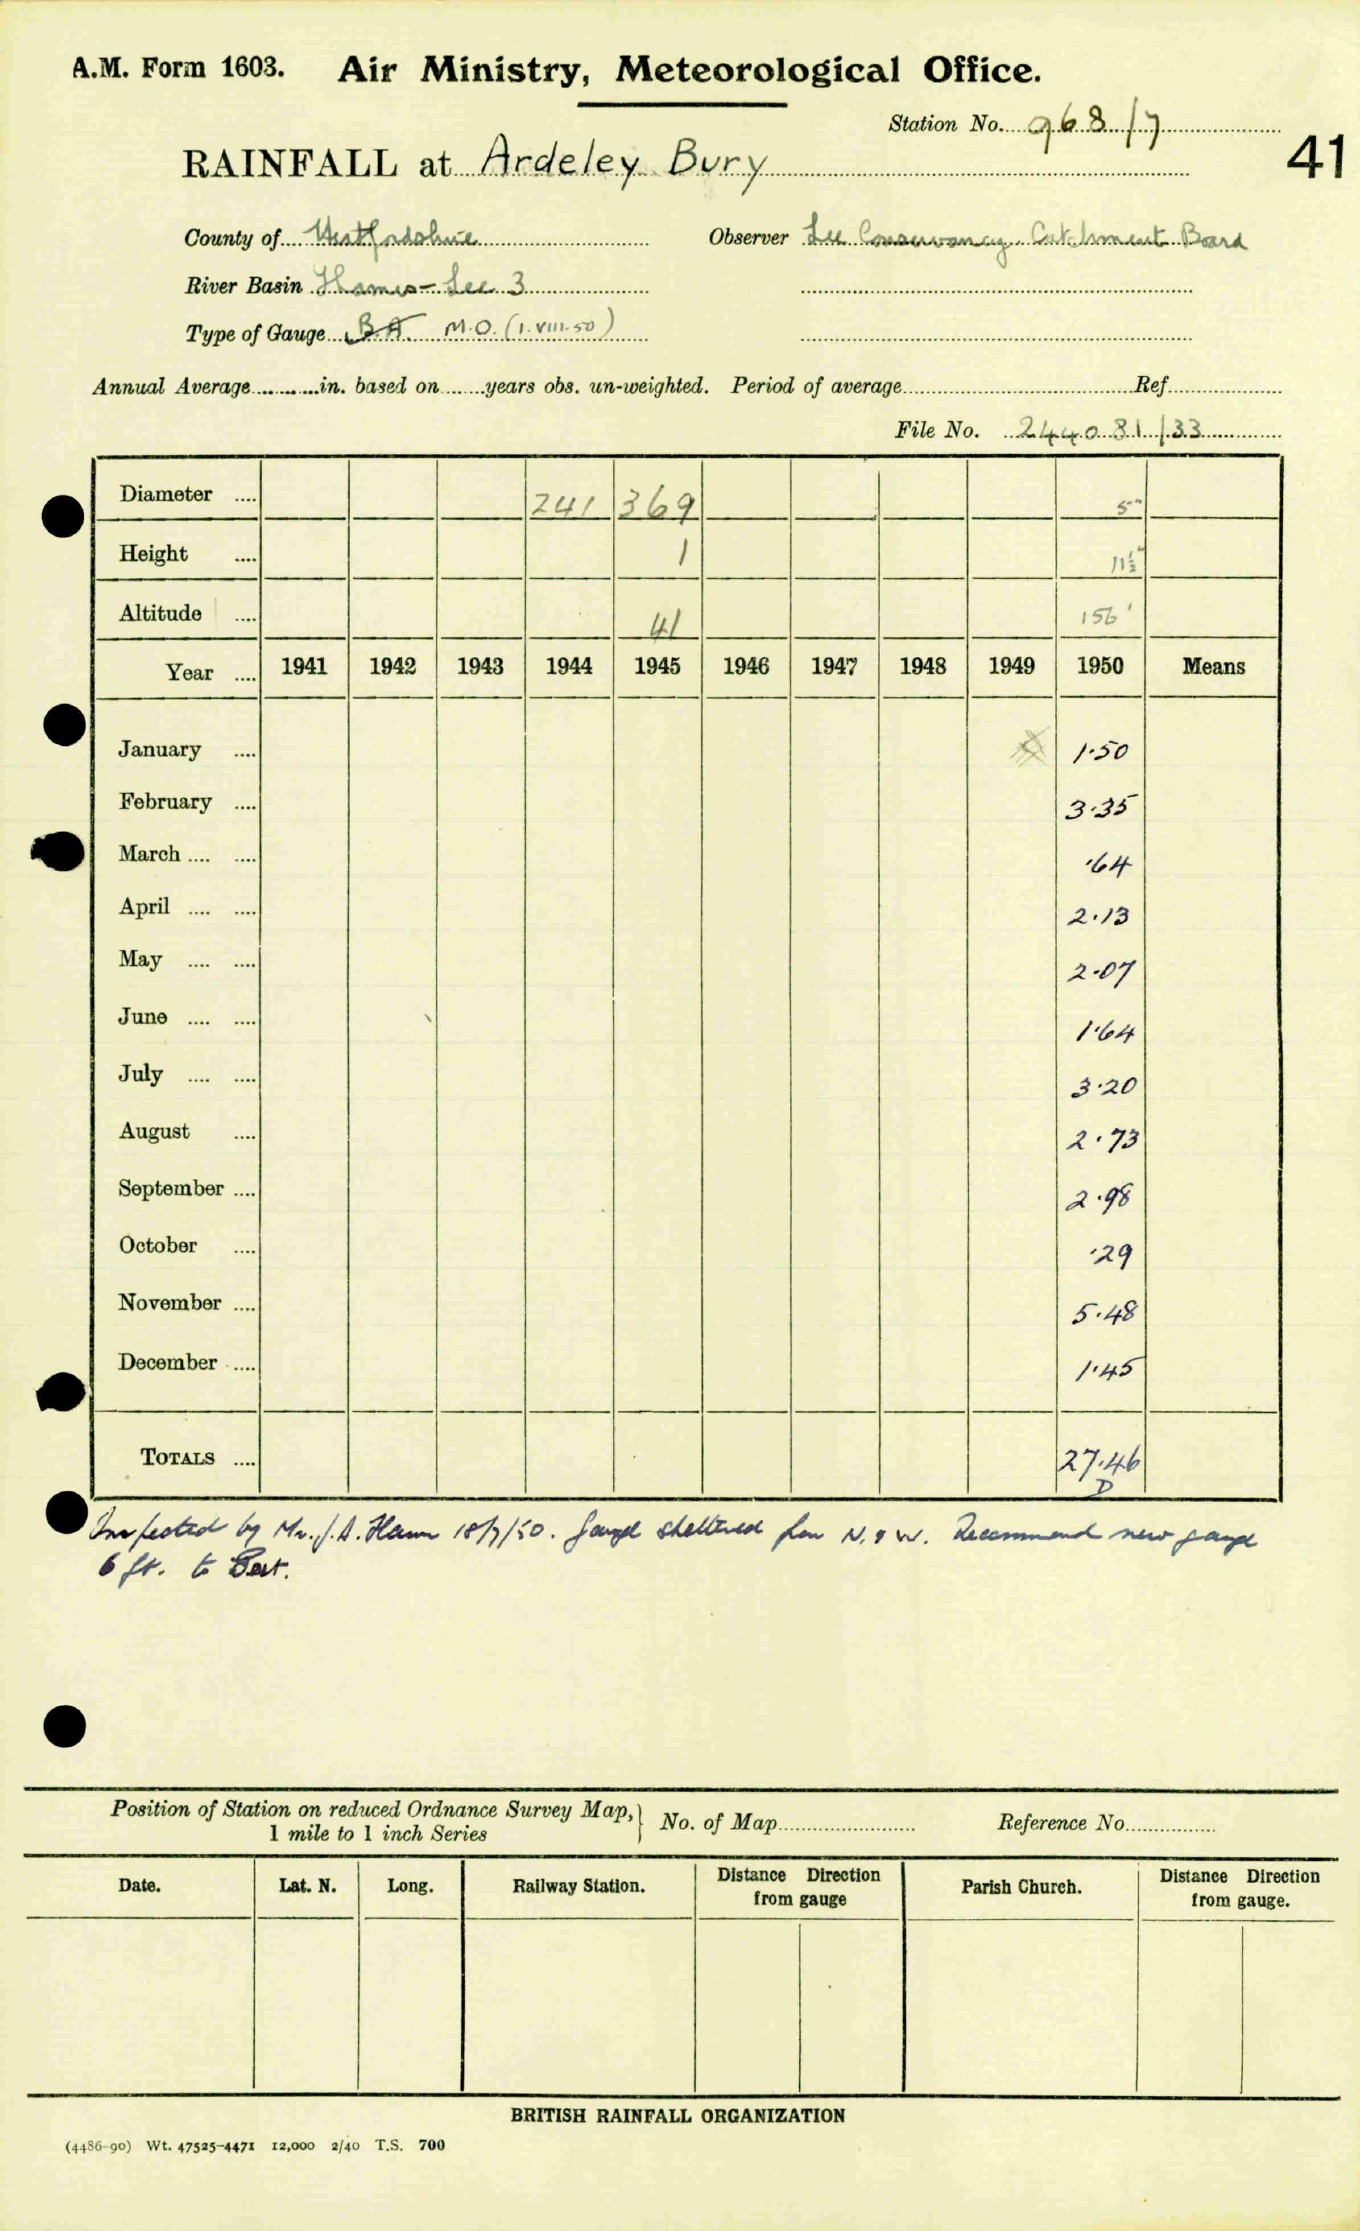 A.M. Form 1603. Air Ministry, Meteorological Office.
Station No. 968/7
41
RAINFALL at Ardeley Bury
County of Hertfordshire Observer Lee Conservancy Catchment Board
River Basin Thames - Lee 3
Type of Gauge B.A. M.O. (1.VIII.50)
Annual Average..........in. based on.......years obs. un-weighted. Period of average..........Ref..........
File No. 244081/33
Diameter .... 241 369 5"
Height .... 1 11½"
Altitude .... 41 156'
Year .... 1941 1942 1943 1944 1945 1946 1947 1948 1949 1950 Means
January .... 1.50
February .... 3.35
March .... .... .64
April .... .... 2.13
May .... .... 2.07
June .... .... 1.64
July .... .... 3.20
August .... 2.73
September .... 2.98
October .... .29
November .... 5.48
December .... 1.45
TOTALS .... 27.46
D
Inspected by Mr. J.A. 18/7/50. Gauge sheltered from N. & W. Recommend new gauge
6 ft. to East.
Position of Station on reduced Ordnance Survey Map,} No. of Map.......... Reference No..........
1 mile to 1 inch Series
Date. Lat. N. Long. Railway Station. Distance from gauge Direction Parish Church. Distance Direction from gauge.
BRITISH RAINFALL ORGANIZATION
(4486-90) Wt. 47525-4471 12,000 2/40 T.S. 700